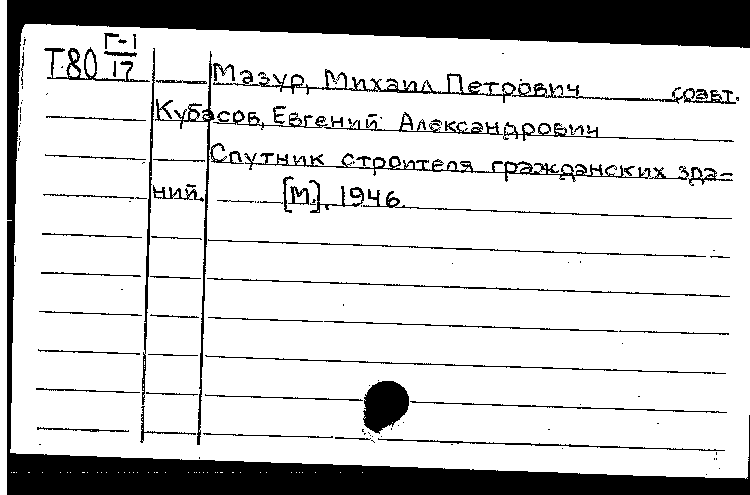 Т80 Г-I/17
Мазур, Михаил Петрович соавт.
Кубасов, Евгений Александрович
Спутник строителя гражданских зда-
ний. [М.], 1946.